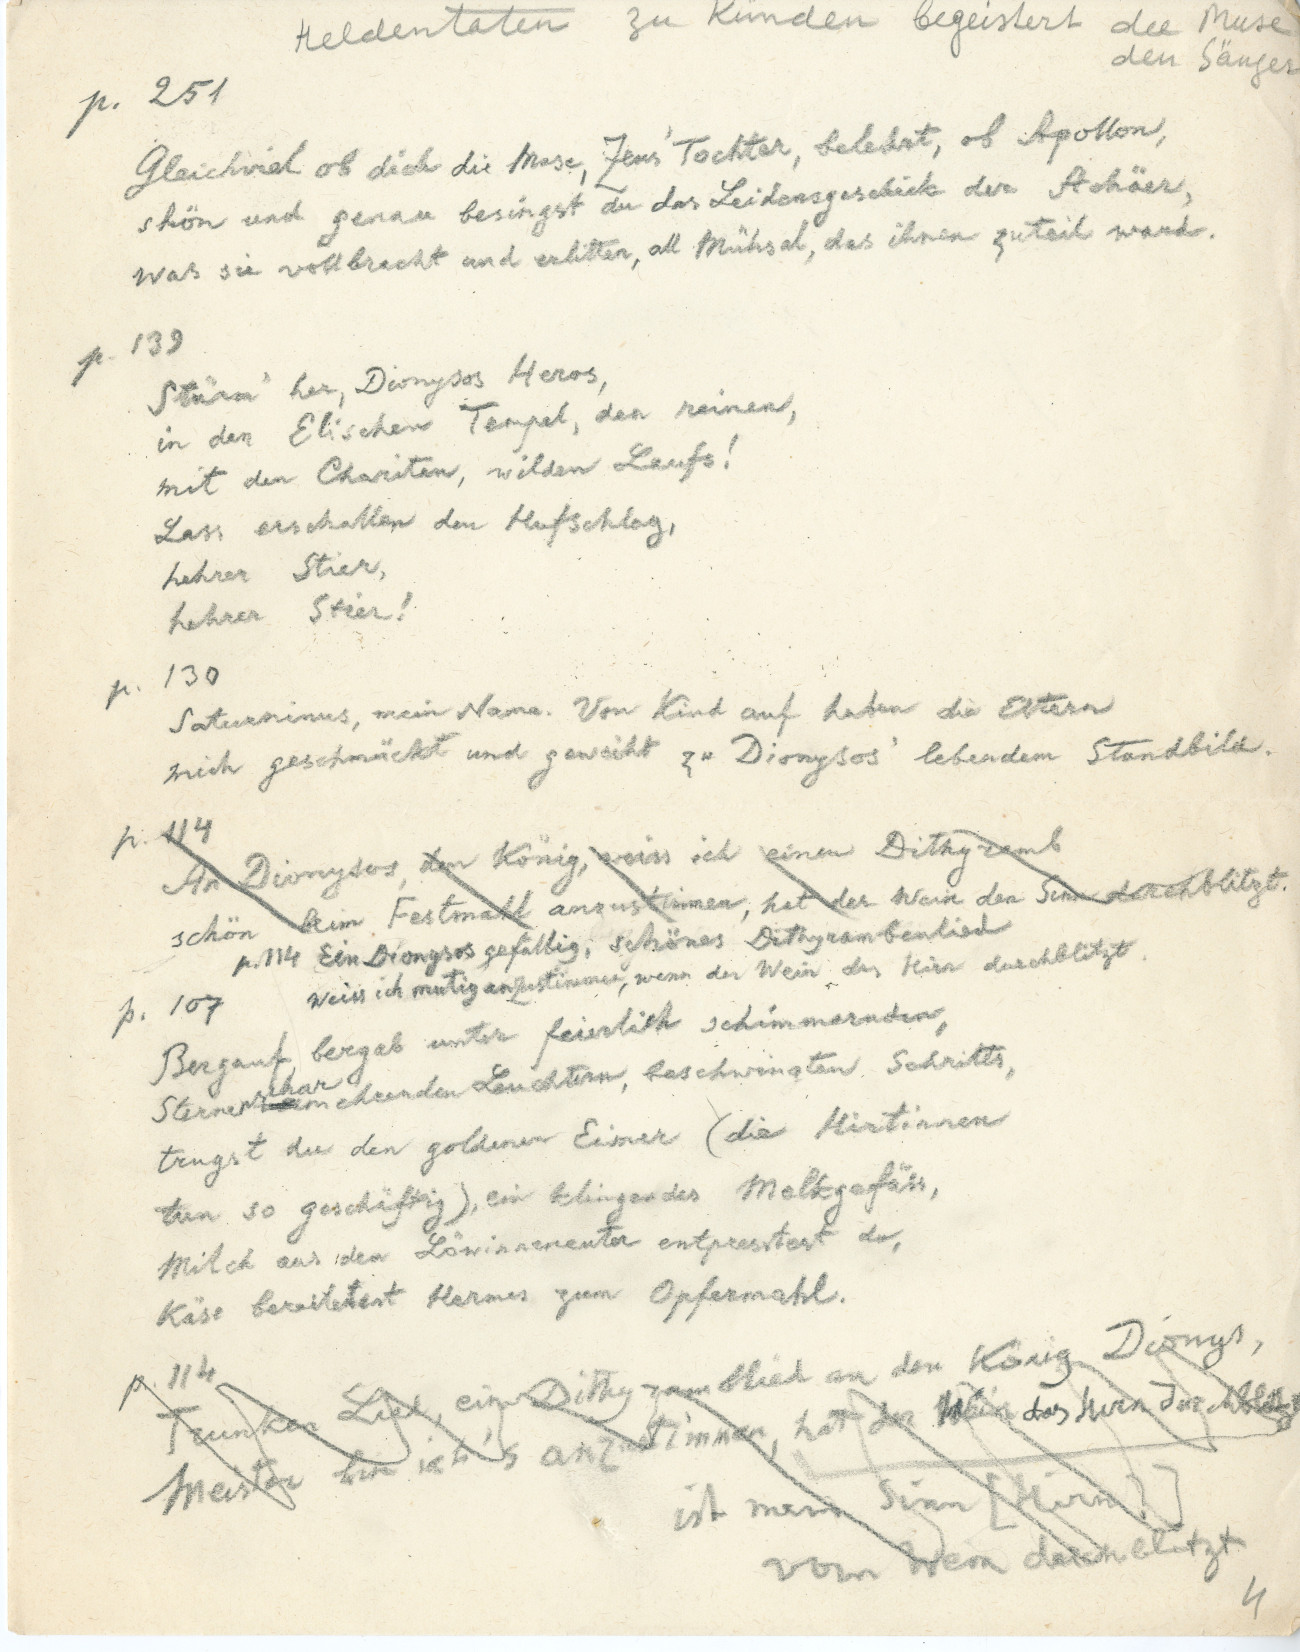 Heldentaten zu künden begeistert die Muse
den Sänger
p. 251
Gleichviel ob dich die Muse, Zeus' Tochter, belehrt, ob Apollon,
schön und genau besingst du das Leidensgeschick der Achäer,
was sie vollbracht und erlitten, all Mühsal, das ihnen zuteil ward.
p. 139
Stürm' her, Dionysos Heros,
in den Elischen Tempel, den reinen,
mit den Chariten, wilden Laufs!
Lass erschallen den Hufschlag,
hehrer Stier,
hehrer Stier!
p. 130
Saturninus, mein Name. Von Kind auf haben die Eltern
mich geschmückt und geweiht zu Dionysos' lebendem Standbild.
p. 114
An Dionysos, den König, weiss ich einen Dithyramb
schön beim Festmahl anzustimmen, hat der Wein den Sinn durchblitzt.
p. 114 Ein Dionysos gefällig, schönes Dithyrambenlied
weiss ich mutig anzustimmen, wenn der Wein das Hirn durchblitzt.
p. 107
Bergauf, bergab unter feierlich schimmernden,
Sternenschar ehrenden Leuchtern, beschwingten Schritts,
trugst du den goldenen Eimer (die Hirtinnen
tun so geschäftig), ein klingendes Melkgefäss,
Milch aus den Löwinneneuter entpresstest du,
Käse bereitetest Hermes zum Opfermahl.
p. 114
Trunken Lied, ein Dithyramblied an den König Dionys,
Meister bin ich's anzustimmen, hat der Wein das Hirn durchblitzt
ist mein Sinn [Hirn?]
vom Wein durchblitzt
4